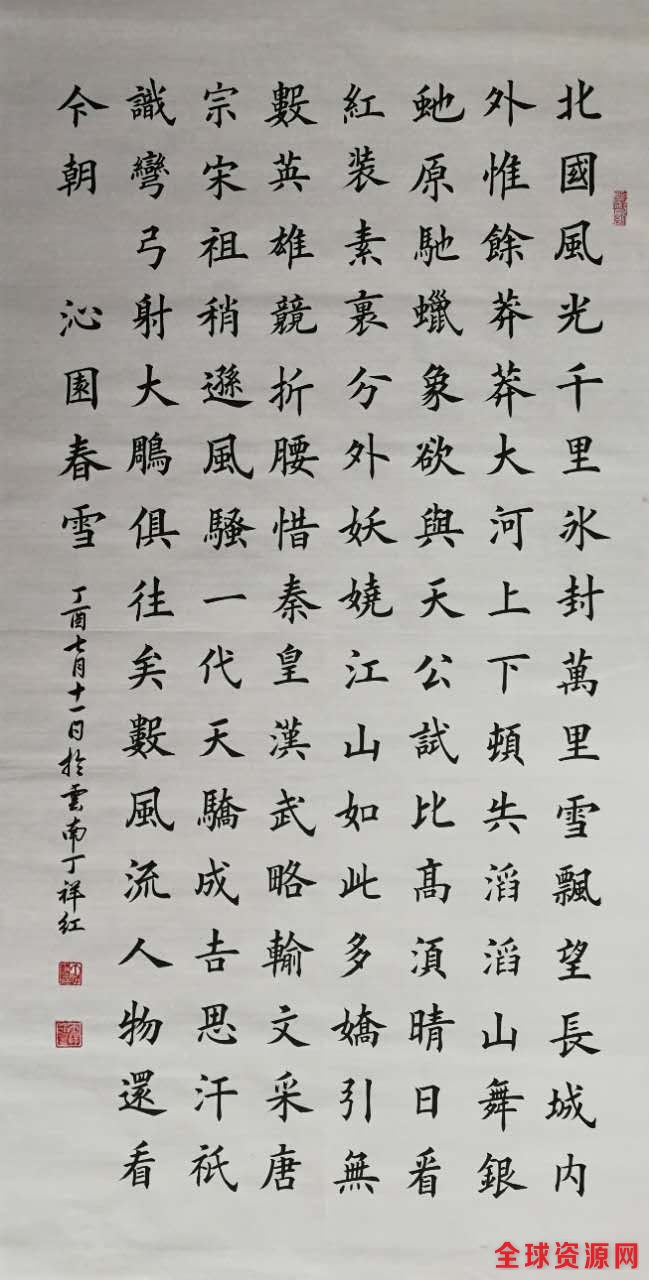 北國風光千里氷封萬里雪飄望長城内
外惟餘莽莽大河上下頓失滔滔山舞銀
虵原馳蠟象欲與天公試比髙湏晴日看
紅装素裏分外妖嬈江山如此多嬌引無
數英雄競折腰惜秦皇漢武略輸文采唐
宗宋祖稍遜風騷一代天驕成吉思汗衹
識彎弓射大鵰俱往矣數風流人物還看
今朝 沁園春雪 丁酉七月十一日於雲南丁祥红
全球资源网